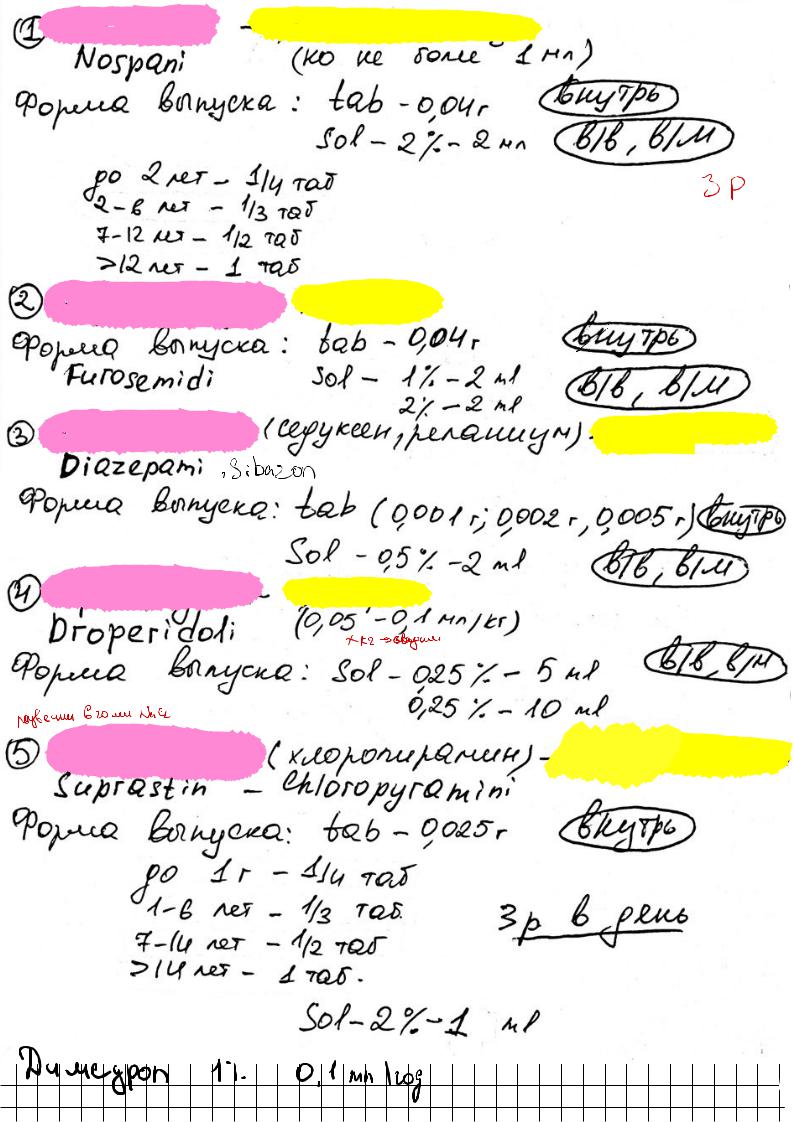 ① -
Nospani (но не более 1 мл)
Форма выпуска: tab – 0,04 г внутрь
Sol – 2% – 2 мл в/в, в/м
до 2 лет – 1/4 таб
3 р
2-6 лет – 1/3 таб
7-12 лет – 1/2 таб
>12 лет – 1 таб
②
Форма выпуска: tab – 0,04 г внутрь
Furosemidi Sol – 1% – 2 ml в/в, в/м
2% – 2 ml
③ (седуксен, реланиум) -
Diazepami, Sibazon
Форма выпуска: tab (0,001 г; 0,002 г, 0,005 г) внутрь
Sol – 0,5% – 2 ml в/в, в/м
④ -
Droperidoli (0,05 – 0,1 мл/кг)
Форма выпуска: Sol – 0,25% – 5 ml в/в, в/м
0,25% – 10 ml
⑤ (хлоропирамин) –
Suprastin – Chloropyramini
Форма выпуска: tab – 0,025 г внутрь
до 1 г – 1/4 таб
1-6 лет – 1/3 таб.
3 р в день
7-14 лет – 1/2 таб
>14 лет – 1 таб.
Sol – 2% – 1 ml
1% 0,1 мл/год